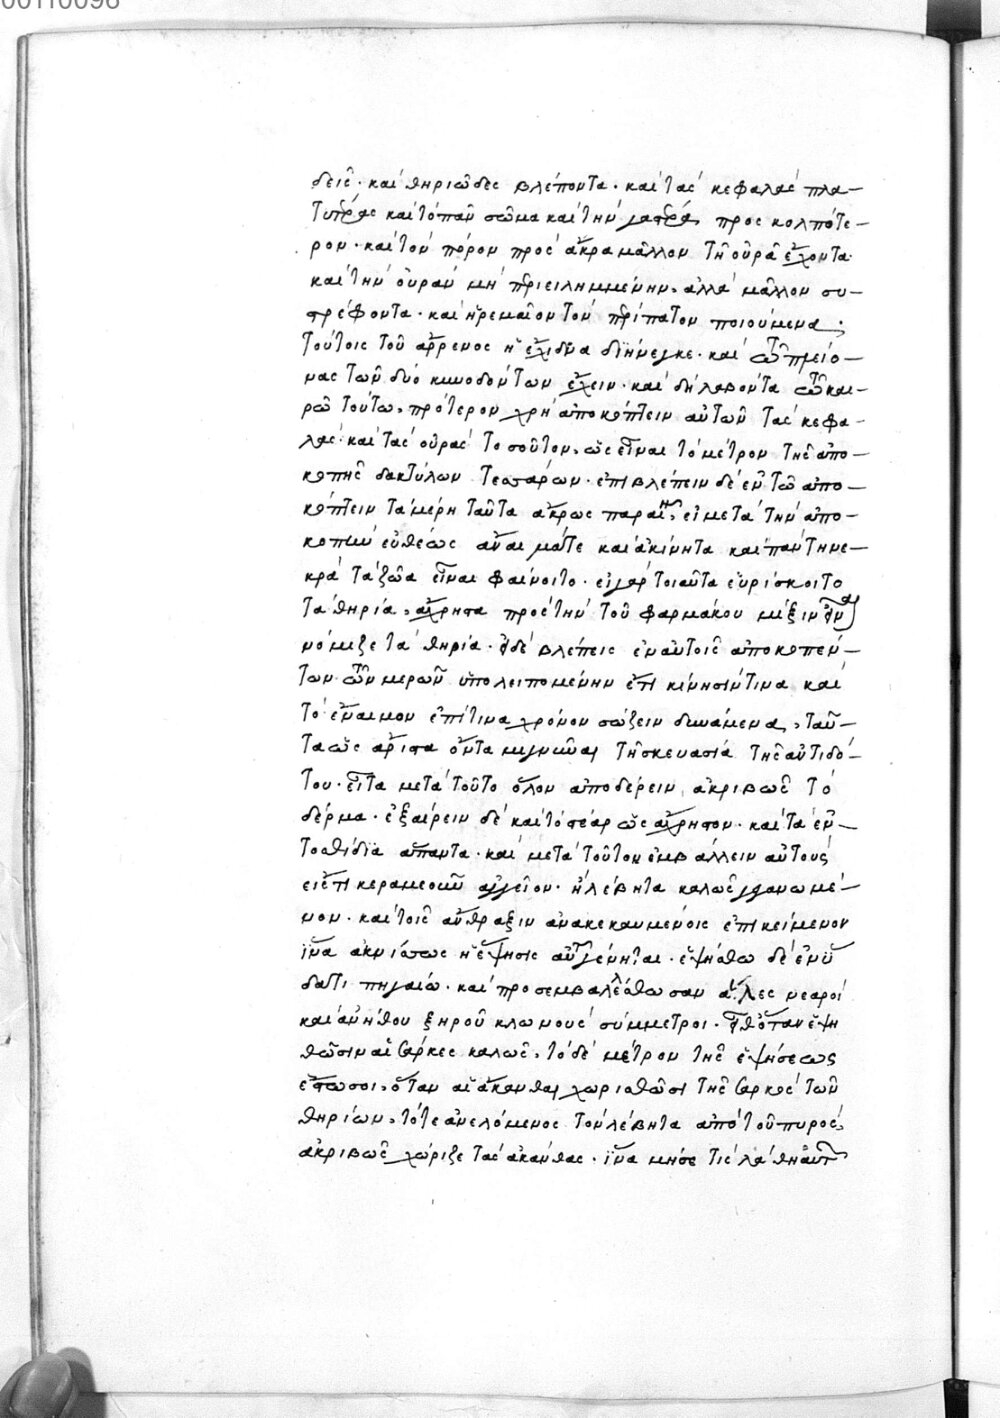 00110096
δεις· καὶ θηριῶδες βλέποντα· καὶ τὰς κεφαλὰς πλα-
τυτέρας καὶ τὸ πᾶν σῶμα καὶ τὴν γαστέρα προς κολπότε-
ρον· καὶ τὸν πόρον πρὸς ἄκρα μᾶλλον τῆ οὐρᾶ ἔχοντα·
καὶ τὴν οὐρὰν μὴ περιειλημμένην, ἀλλὰ μᾶλλον συ-
στρέφοντα· καὶ ἠρεμαῖον τὸν περίπατον ποιούμενα·
τούτοις τοῦ ἄρρενος ἡ ἔχιδνα διήνεγκε· καὶ τῶ πλείο-
νας τῶν δύο κυνοδόντων ἔχειν· καὶ δὴ λαβόντα τῶ και-
ρῶ τούτω, πρότερον χρὴ ἀποκόπτειν αὐτῶν τὰς κεφα-
λὰς· καὶ τὰς οὐρὰς τοσοῦτον, ὡς εἶναι τὸ μέτρον τῆς ἀπο-
κοπῆς δακτύλων τεσσάρων· ἐπιβλέπειν δὲ ἐν τῶ ἀπο-
κόπτειν τὰ μέρη ταῦτα ἄκρως παραινῶ, εἰ μετὰ τὴν ἀπο-
κοπὴν εὐθέως ἄναιμά τε καὶ ἀκίνητα καὶ πάντη νε-
κρὰ τὰ ζῶα εἶναι φαίνοιτο· εἰ γὰρ τοιαῦτα εὑρίσκοιτο
τὰ θηρία, ἄχρηστα πρὸς τὴν τοῦ φαρμάκου μίξιν εἶναι
νόμιζε τὰ θηρία· εἰ δὲ βλέπεις ἐν αὐτοῖς ἀποκοπέν-
των τῶν μερῶν ὑπολειπομένην ἔτι κίνησίν τινα καὶ
τὸ ἔναιμον ἐπί τινα χρόνον σώζειν δυνάμενα, ταῦ-
τα ὡς ἄριστα ὄντα μιγνῦναι τῆ σκευασία τῆς ἀντιδό-
του· εἶτα μετὰ τοῦτο ὅλον ἀποδέρειν ἀκριβῶς τὸ
δέρμα· ἐξαίρειν δὲ καὶ τὸ στέαρ ὡς ἄχρηστον· καὶ τὰ ἐν-
τοσθίδια ἅπαντα· καὶ μετὰ τοῦτον ἐμβάλλειν αὐτοὺς
εἰς ἔτι κεραμεοῦν ἀγγεῖον· ἢ λέβητα καλῶς γεγανωμέ-
νον· καὶ τοῖς ἄνθραξιν ἀνακεκαυμένοις ἐπικείμενον
ἵνα ἀκνίστως ἡ ἕψησις αὐτῶν γένηται· ἑψήσθω δὲ ἐν ὕ
δατι πηγαίω· καὶ προσεμβαλλέσθωσαν ἅλες νεαροὶ
καὶ ἀνήθου ξηροῦ κλωνους σύμμετροι· ἐπὰν ὅταν ἕψη
θῶσιν αἱ σάρκες καλῶς, τὸ δὲ μέτρον τῆς ἑψήσεως
ἔστω σοι, ὅταν αἱ ἄκανθαι χωρισθῶσι τῆς σαρκὸς τῶν
θηρίων, τότε ἀνελόμενος τὸν λέβητα ἀπὸ τοῦ πυρὸς,
ἀκριβῶς χώριζε τὰς ἀκάνθας· ἵνα μή σέ τις λάθη αὐτῶν